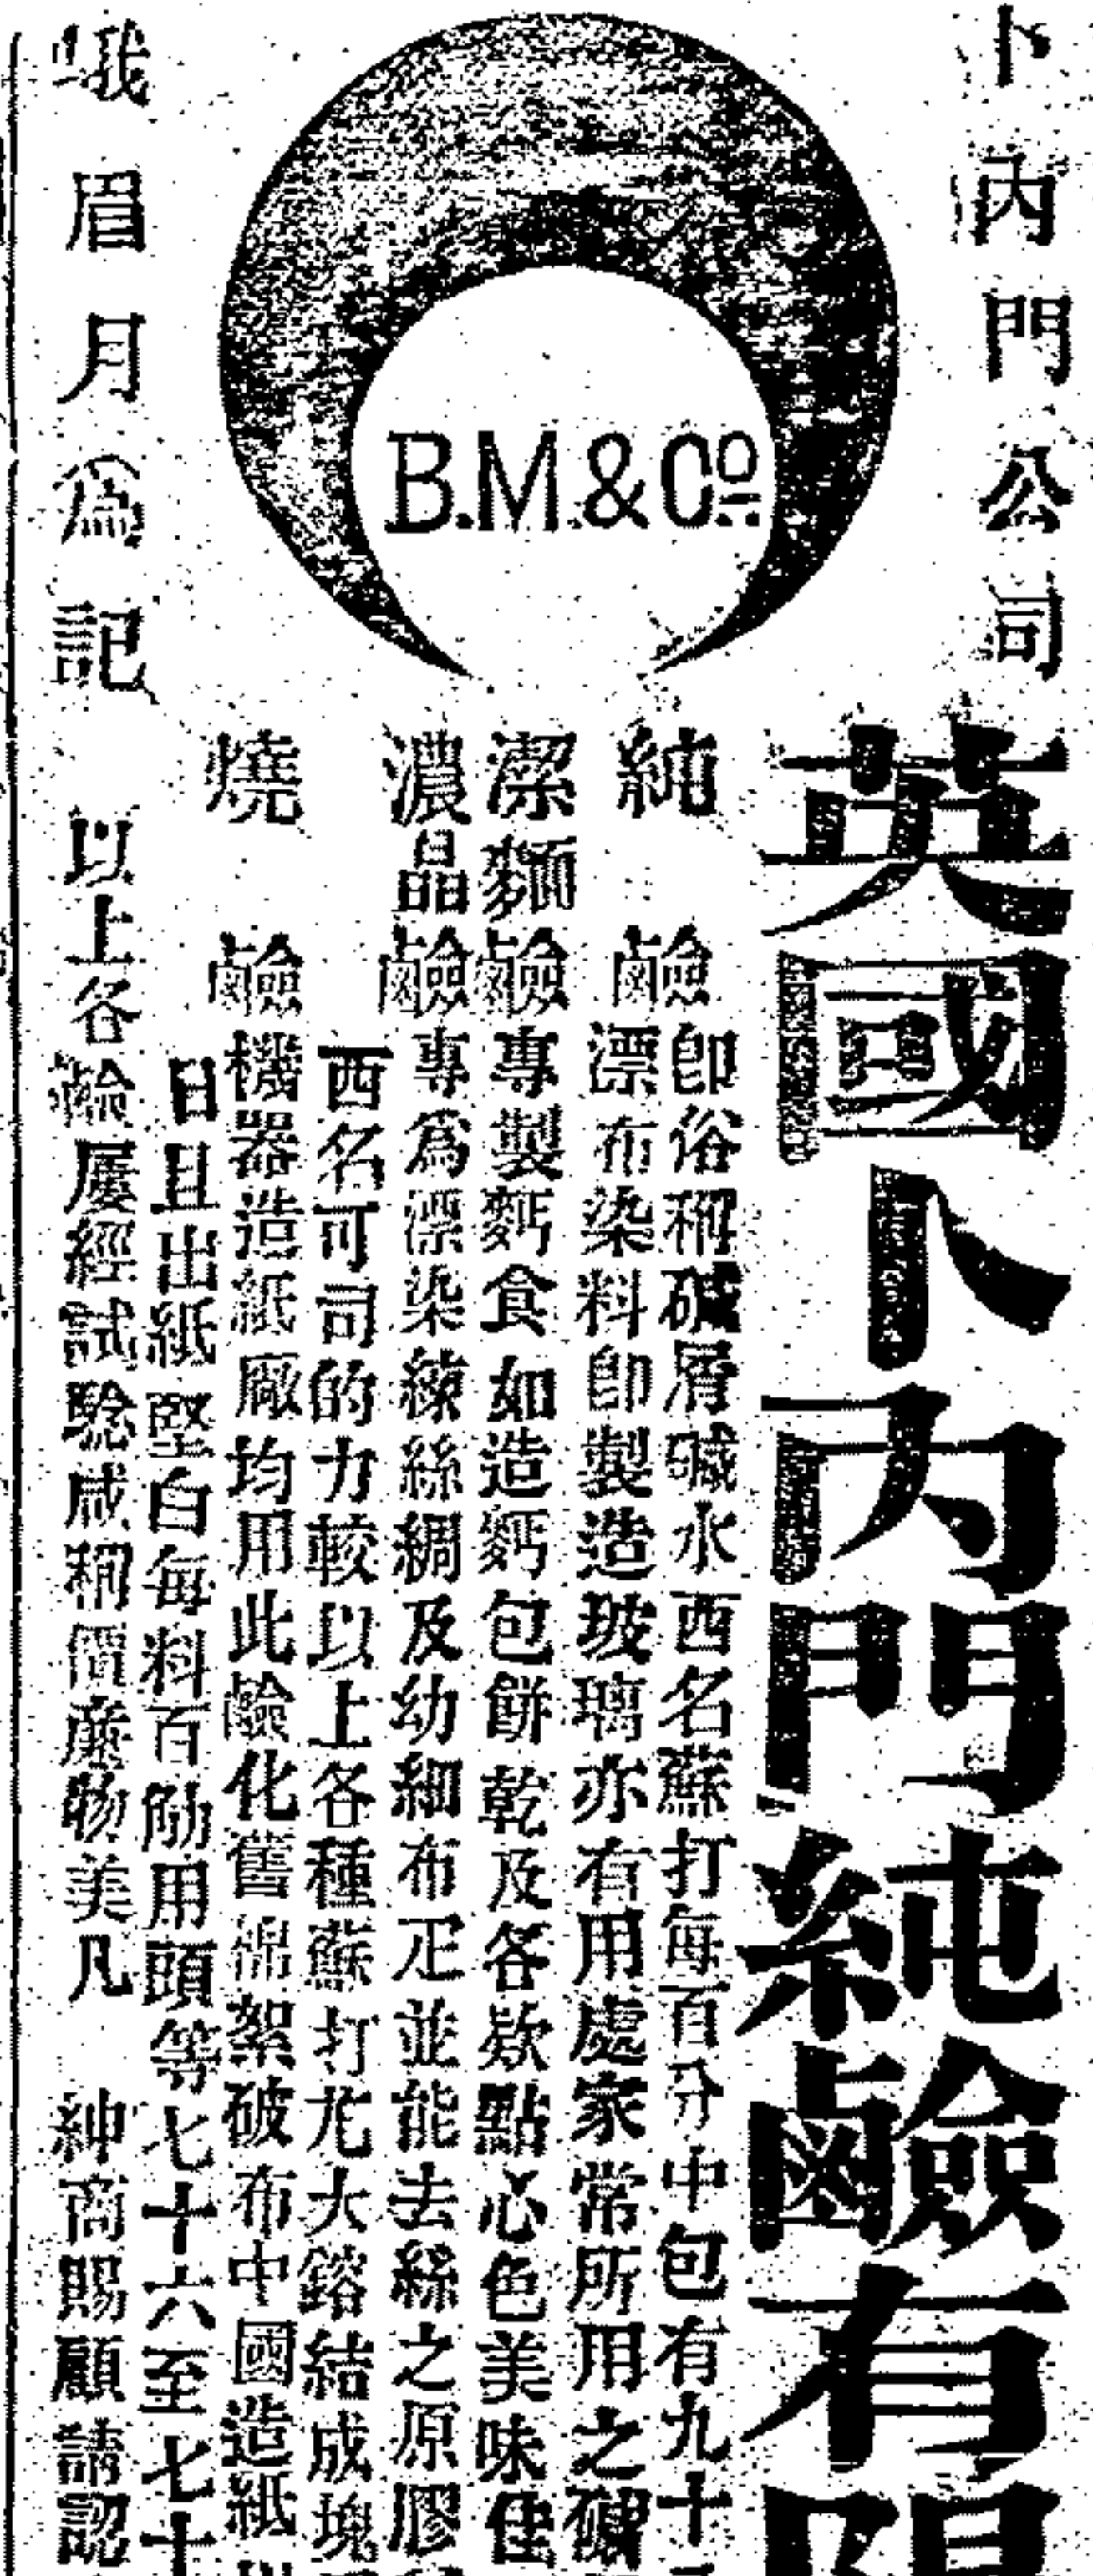 卜內門公司
英國卜內門純鹼有限
B.M.&Co.
純鹼
卽俗稱碱屑碱水西名蘇打每百分中包有九十
漂布染料卽製造玻璃亦有用處家常所用之
潔麵鹼專製麪食如造麪包餅乾及各欵點心色美味佳
濃晶鹼專爲漂染練絲綢及幼細布疋並能去絲之原膠
西名可司的力較以上各種蘇打尤大鎔結成塊
燒鹼機器造紙廠均用此鹼化舊綿絮破布中國造紙
日且出紙堅白每料百觔用頭等七十六至七十
峨眉月爲記
以上各鹼屢經試驗咸稱價廉物美凡 紳商賜顧請認